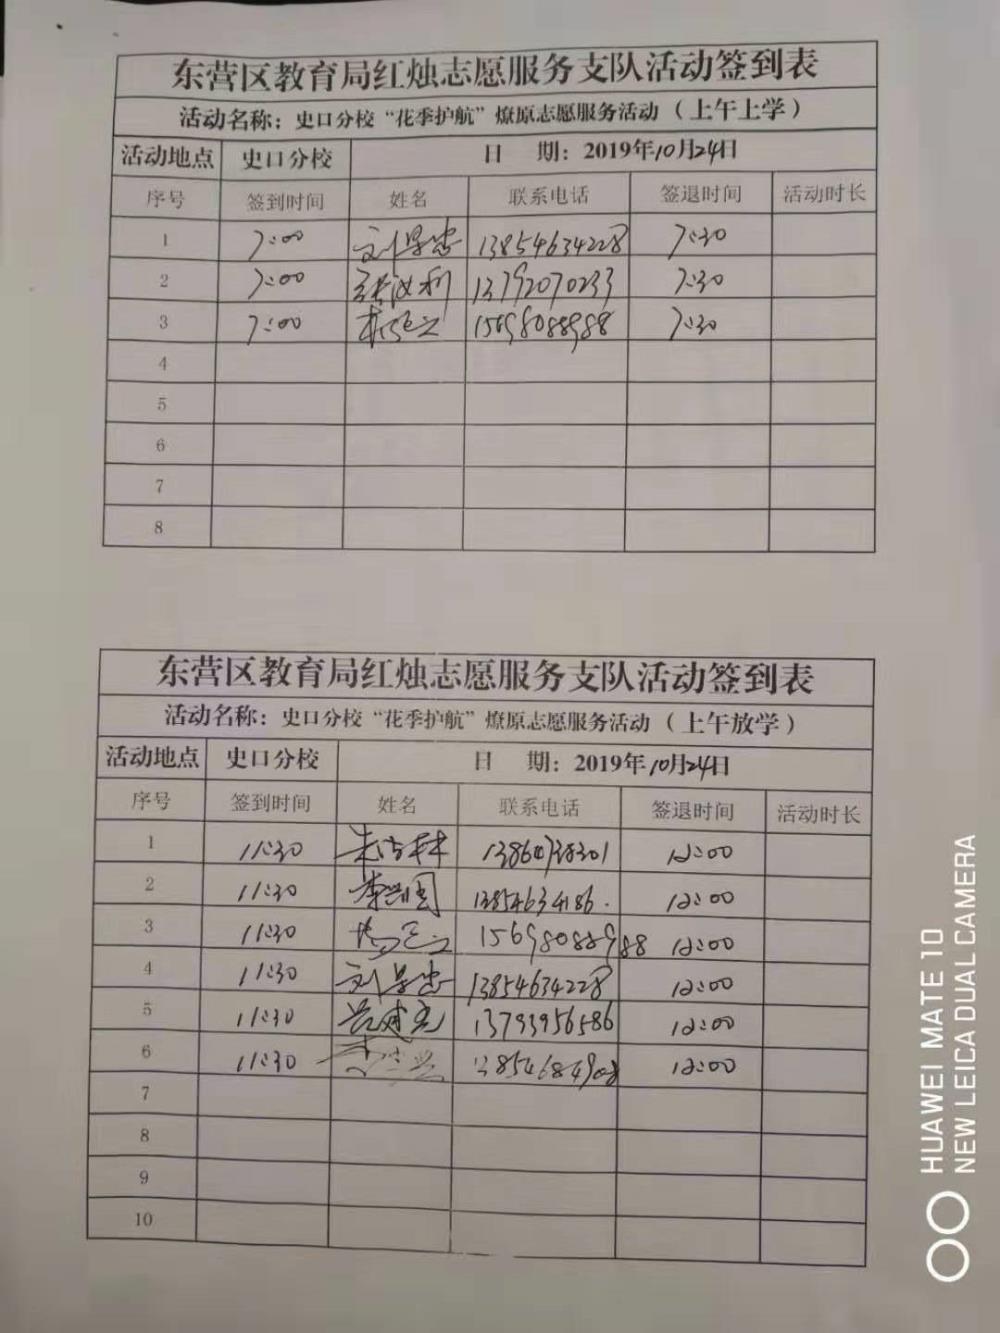 东营区教育局红烛志愿服务支队活动签到表
活动名称：史口分校“花季护航”燎原志愿服务活动（上午上学）
活动地点 史口分校 日 期：2019年10月24日
序号 签到时间 姓名 联系电话 签退时间 活动时长
1 7:00 13854634228 7:30
2 7:00 13792070233 7:30
3 7:00 15698088988 7:30
4
5
6
7
8
东营区教育局红烛志愿服务支队活动签到表
活动名称：史口分校“花季护航”燎原志愿服务活动（上午放学）
活动地点 史口分校 日 期：2019年10月24日
序号 签到时间 姓名 联系电话 签退时间 活动时长
1 11:30 12:00
2 11:30 李兴国 13854634186. 12:00
3 11:30 15698088988 12:00
4 11:30 13854634228 12:00
5 11:30 13793956586 12:00
6 11:30 12:00
7
8
9
10
HUAWEI MATE 10
NEW LEICA DUAL CAMERA